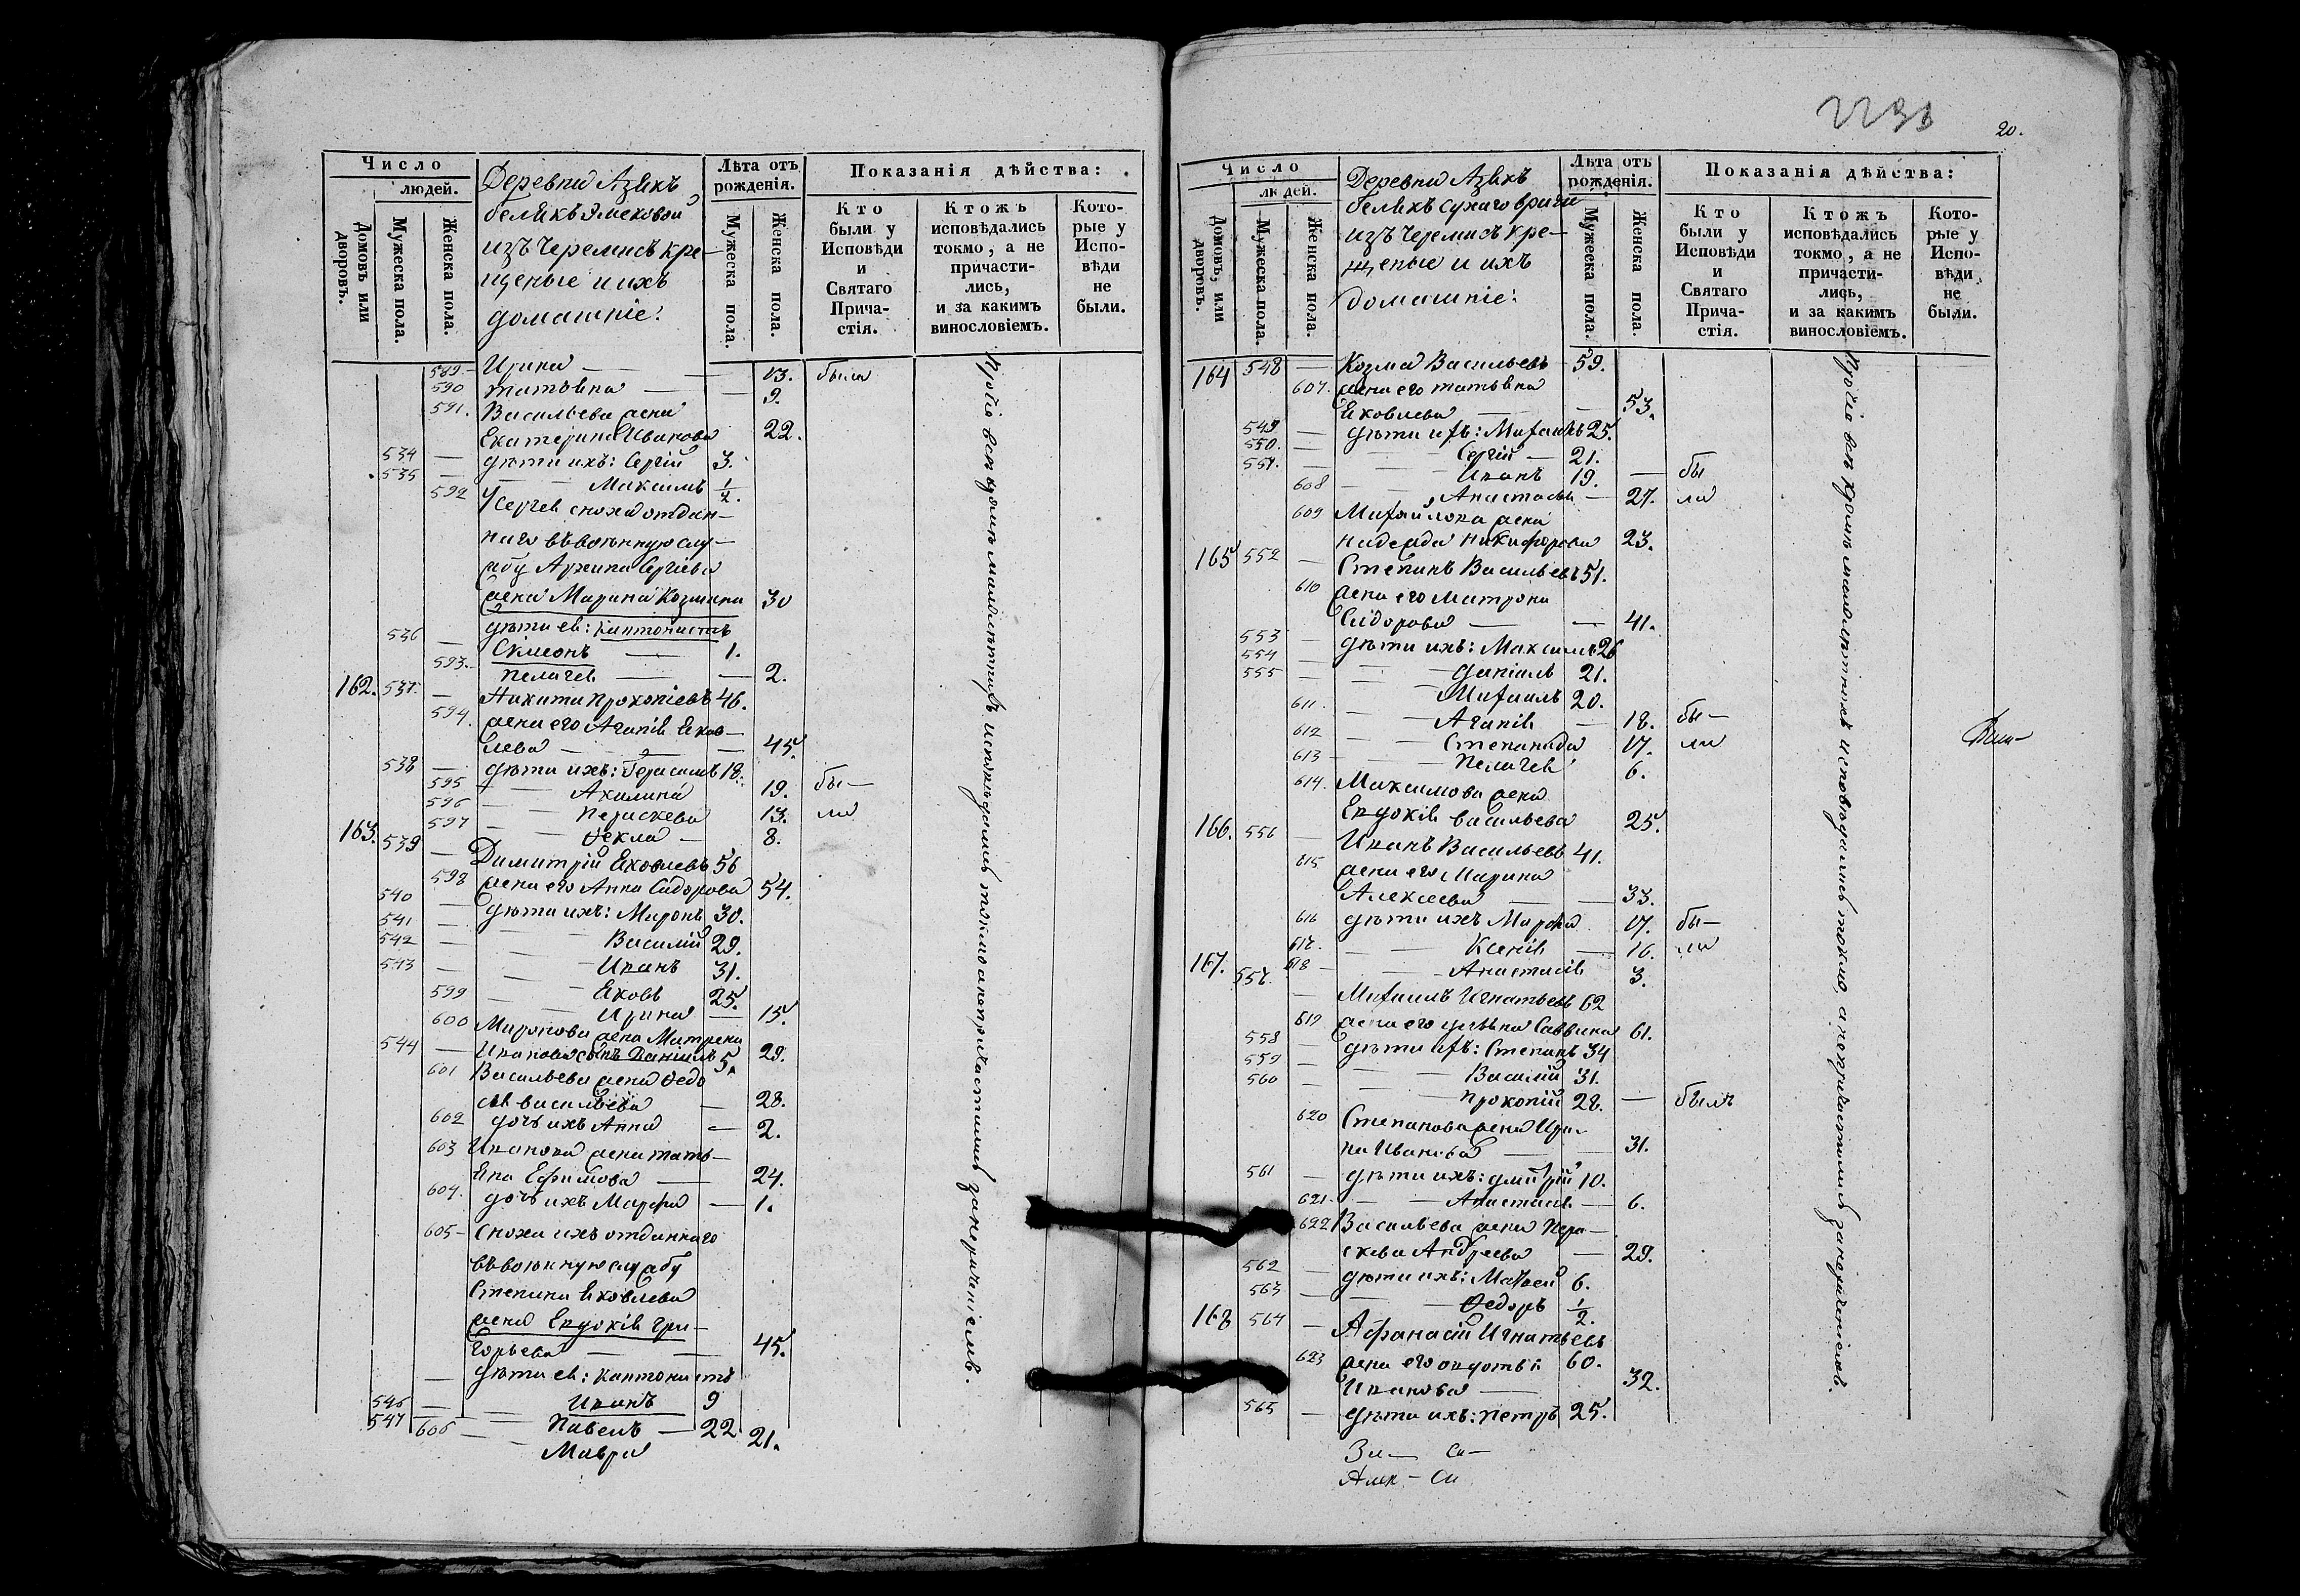 Число
людей.
Домовъ или дворовъ.
Мужеска пола.
Женска пола.
Деревни Азякъ
беликъ
изъ Черемисъ кре-
щеные и ихъ
домашніе:
Лѣта отъ рожденія.
Мужеска пола.
Женска пола.
Показанія дѣйства:
Кто были у Исповѣди и Святаго Прича- стія.
Ктожъ исповѣдались токмо, а не причасти- лись, и за какимъ винословіемъ.
Кото- рые у Испо- вѣди не были.
589 Ирина 13. была
590 Татьяна 9.
591. Васильева жена
Екатерина Иванова 22.
534 дѣти ихъ: Сергій 3.
535 Максимъ 1/2.
592 сноха отдан-
наго въ военную слу-
жбу Архипа Сергіева
жена Марина Козмина 30
дѣти ея: кантонистъ
536 Симеонъ 1.
593. Пелагея 2.
162. 537. Никита Прокопіевъ 46.
594. жена его Агапія Яков-
лева 45.
538 дѣти ихъ: Герасимъ 18.
595 Акилина 19. бы-
596 Параскева 13. ли
597 Ѳекла 8.
163. 539 Димитрій Яковлевъ 56
598 жена его Анна Сидорова 54.
540 дѣти ихъ: Миронъ 30.
541 Василій 29.
542 Иванъ 31.
543 Яковъ 25.
599 Ирина 15.
600 Миронова жена Матрена
544 Иванова сынъ Даніилъ 5. 29.
601 Васильева жена Ѳедо
сія Васильева 28.
602 дочь ихъ Анна 2.
603 Иванова жена Тать-
яна Ефимова 24.
604. дочь ихъ Марфа 1.
605 Сноха ихъ отданнаго
въ военную службу
Степана Яковлева
жена Евдокія Гри-
горьева 45.
дѣти ея: кантонистъ
546 Иванъ 9
547 Павелъ 22
606 Мавра 21.
Прочіе всѣ кромѣ малолѣтнихъ исповѣдались токмо а непричастились за нераченіемъ.
20.
Число
людей.
Домовъ, или дворовъ.
Мужеска пола.
Женска пола.
Деревни Азякъ
беликъ
изъ Черемисъ кре-
щеные и ихъ
домашніе:
Лѣта отъ рожденія.
Мужеска пола.
Женска пола.
Показанія дѣйства:
Кто были у Исповѣди и Святаго Прича- стія.
Ктожъ исповѣдались токмо, а не причасти- лись, и за какимъ винословіемъ.
Кото- рые у Испо- вѣди не были.
164 548 Козма Васильевъ 59.
607. жена его Татьяна
Яковлева 53.
549 дѣти ихъ: Михаилъ 25.
550. Сергій 21.
551. Иванъ 19. бы
608 Анастасія 27. ли
609 Михайлова жена
Надежда Никифорова 23.
165 552 Степанъ Васильевъ 51.
610 жена его Матрона
Сидорова 41.
553 дѣти ихъ: Максимъ 26
554 Даніилъ 21.
555 Михаилъ 20.
611. Агапія 18. бы-
612 Степанида 17. ли
613 Пелагея 6.
614. Максимова жена
Евдокія Васильева 25.
166. 556 Иванъ Васильевъ 41.
615 жена его Марина
Алексеева 33.
616 дѣти ихъ Марѳа 17. бы-
617. Ксенія 16. ли
618 Анастасія 3.
167. 557. Михаилъ Игнатьевъ 62
619 жена его Саввина 61.
558 дѣти ихъ: Степанъ 34
559 Василій 31.
560 Прокопій 28. былъ
620 Степанова жена Ири-
на Иванова 31.
561 дѣти ихъ: Дмитрій 10.
621. Анастасія 6.
622 Васильева жена Пара-
скева Андреева 29.
562 дѣти ихъ: Матвей 6.
563 Ѳедоръ 1/2.
168 564 Афанасій Игнатьевъ
623 жена его Овдотья 60.
Иванова 32.
565 дѣти ихъ: Петръ 25.
Прочіе всѣ кромѣ малолѣтнихъ исповѣдались токмо, а непричастились за нераченіемъ.